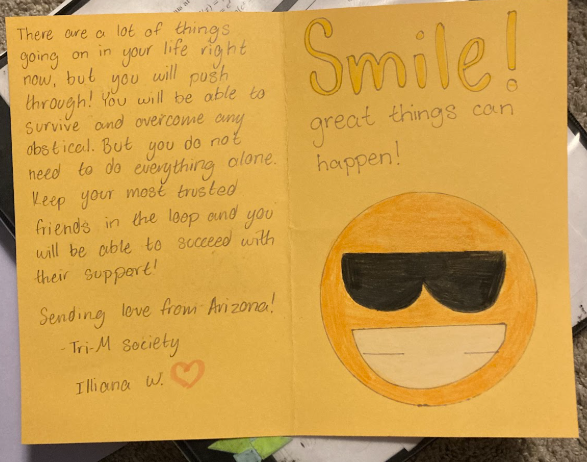 There are a lot of things
going on in your life right
now, but you will push
through! You will be able to
survive and overcome any
obstical. But you do not
need to do everything alone.
Keep your most trusted
friends in the loop and you
will be able to succeed with
their support!
Sending love from Arizona!
-Tri-M society
Illiana W.
Smile!
great things can
happen!